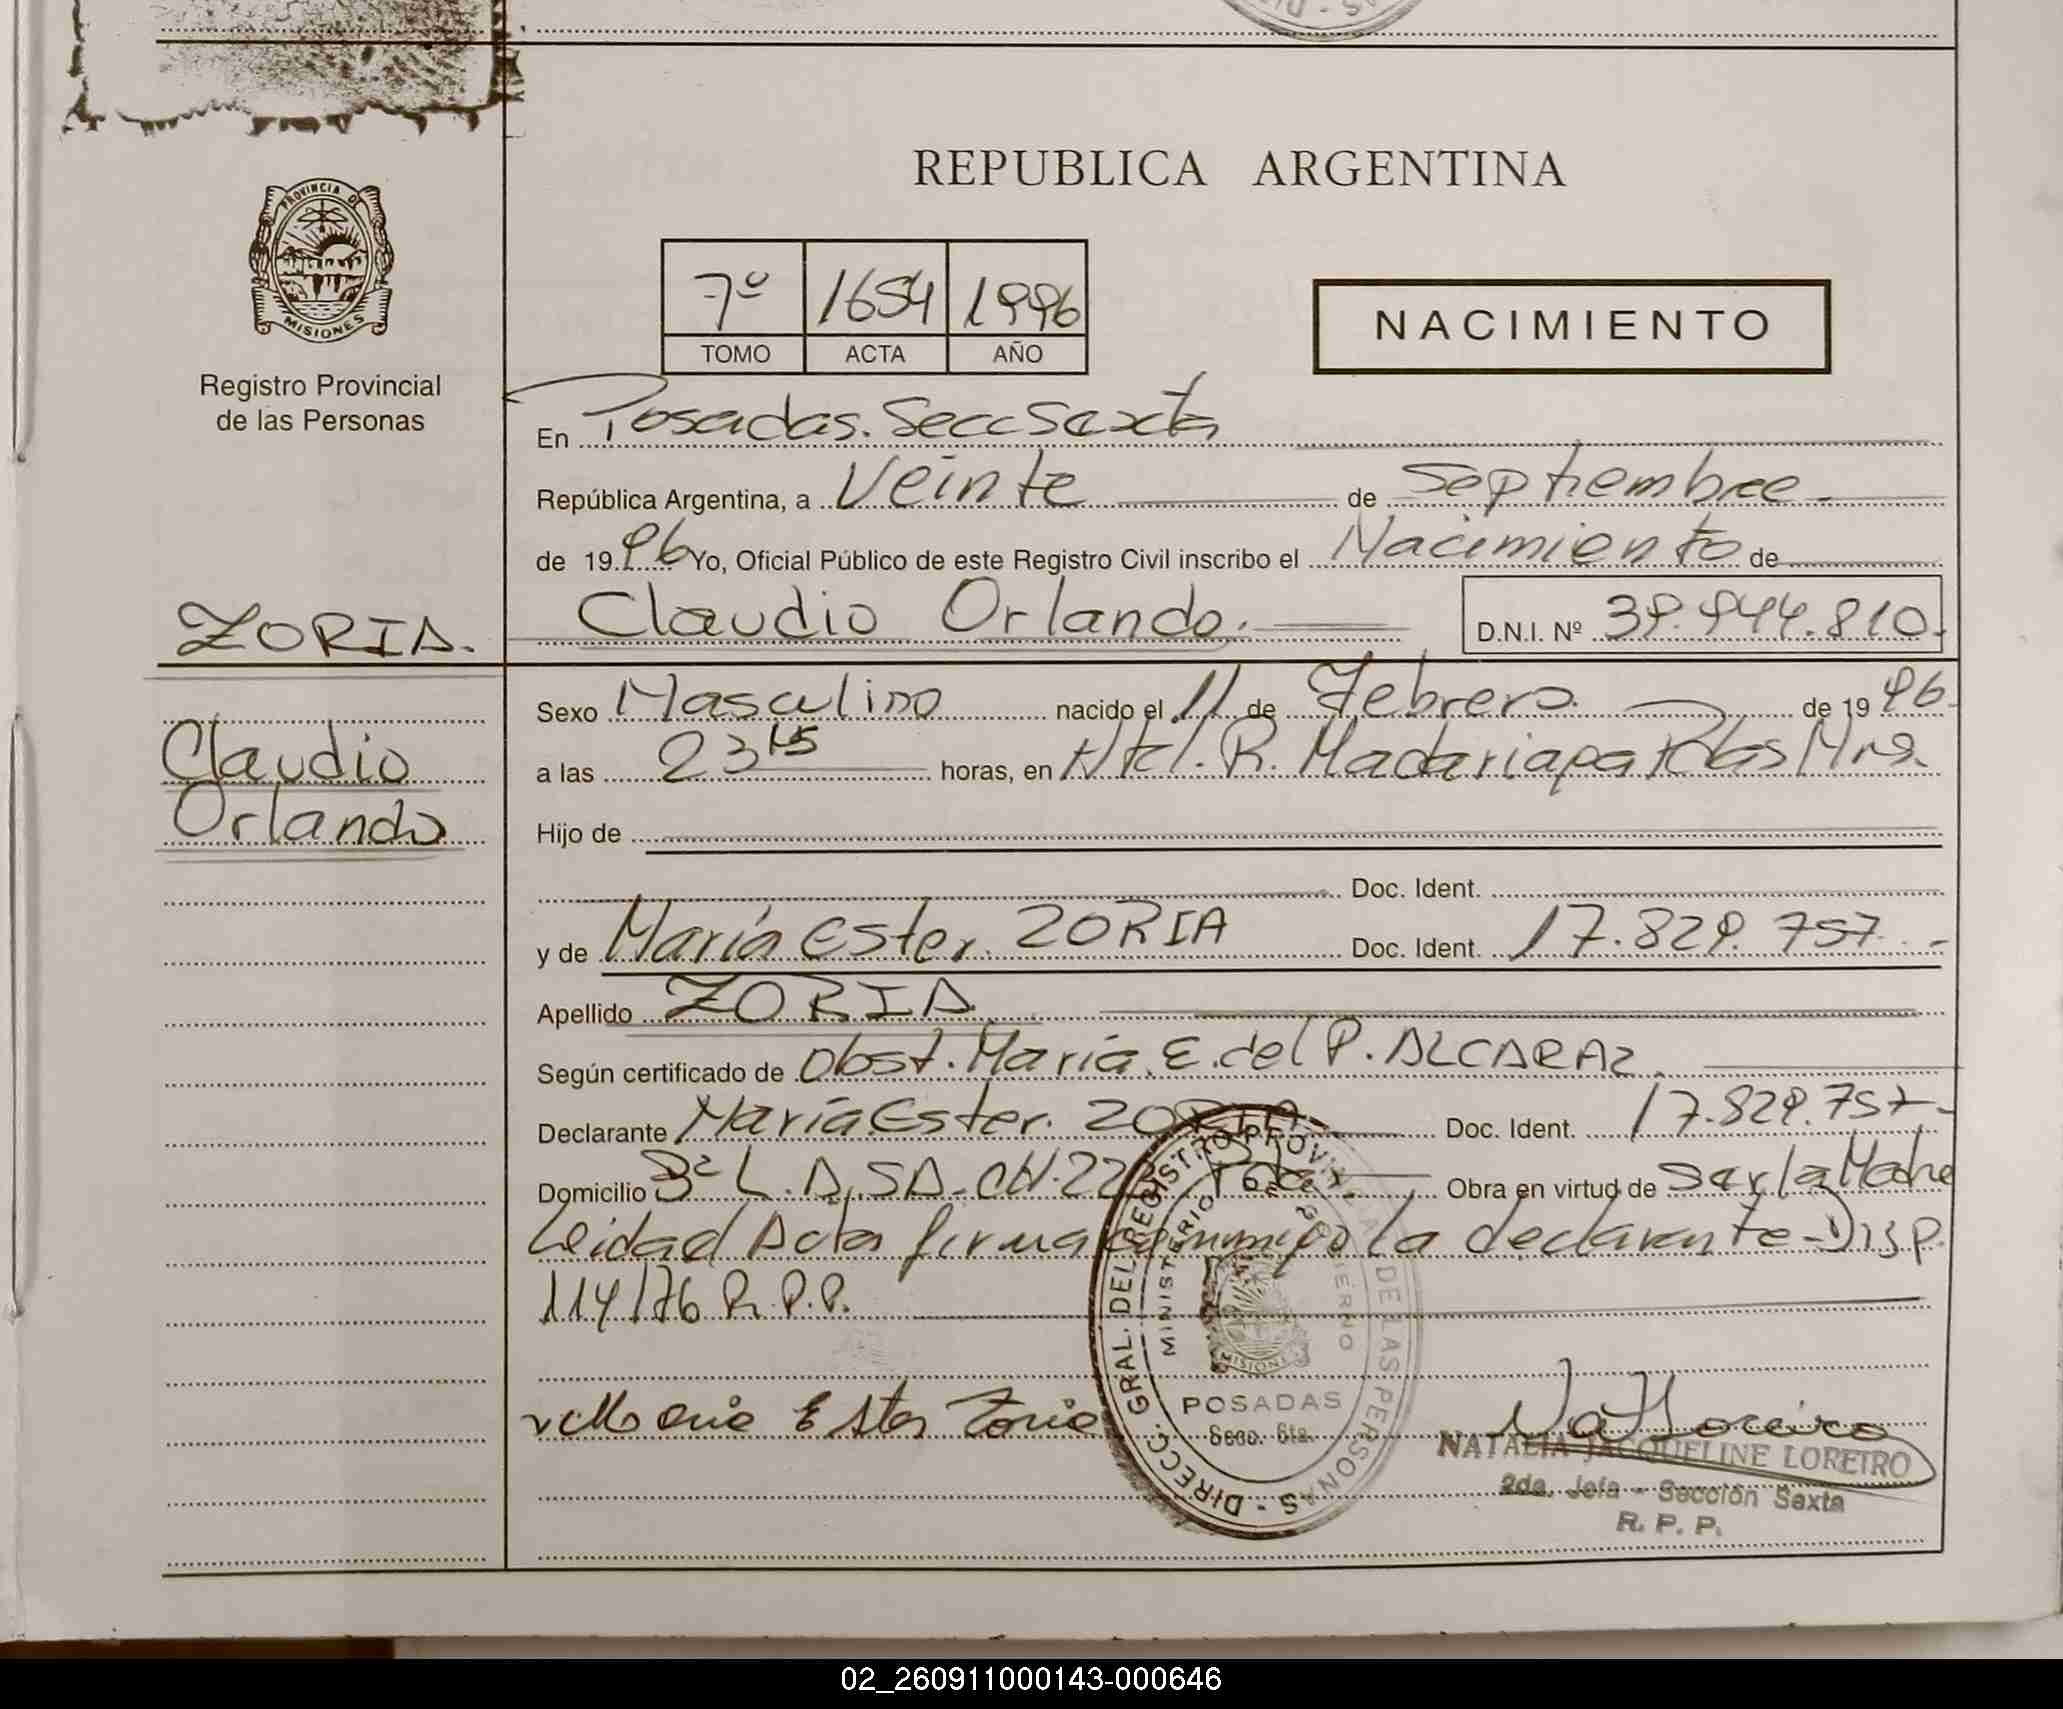 REPUBLICA ARGENTINA
PROVINCIA DE
MISIONES
Registro Provincial
de las Personas
7º 1654 1996
TOMO ACTA AÑO
NACIMIENTO
En Posadas. Secc Sexta
República Argentina, a Veinte de Septiembre.
de 1996 Yo, Oficial Público de este Registro Civil inscribo el Nacimiento de
ZORIA.
Claudio Orlando. D.N.I. Nº 39.944.810.
Claudio
Orlando
Sexo Masculino nacido el 11 de Febrero. de 1996.
a las 23 15 horas, en R. Madariaga Pdas Mns.
Hijo de
Doc. Ident.
y de María Ester. ZORIA Doc. Ident. 17.829.757.-
Apellido ZORIA
Según certificado de Obst. María. E. del P. ALCARAZ.
Declarante María Ester. ZORIA- Doc. Ident. 17.829.757-
Domicilio L.A.SA. CH.22 Pdas Obra en virtud de ser la Madre
Leidad Acta firma conmigo la declarante-Disp.
114/76 R.P.P.
Ester Zoria
DIRECC. GRAL. DEL REGISTRO PROVINCIAL DE LAS PERSONAS -
MINISTERIO DE GOBIERNO
MISIONES
POSADAS
Secc. 6ta.
NATALIA JACQUELINE LOREIRO
2da. Jefa - Sección Sexta
R. P. P.
02_260911000143-000646